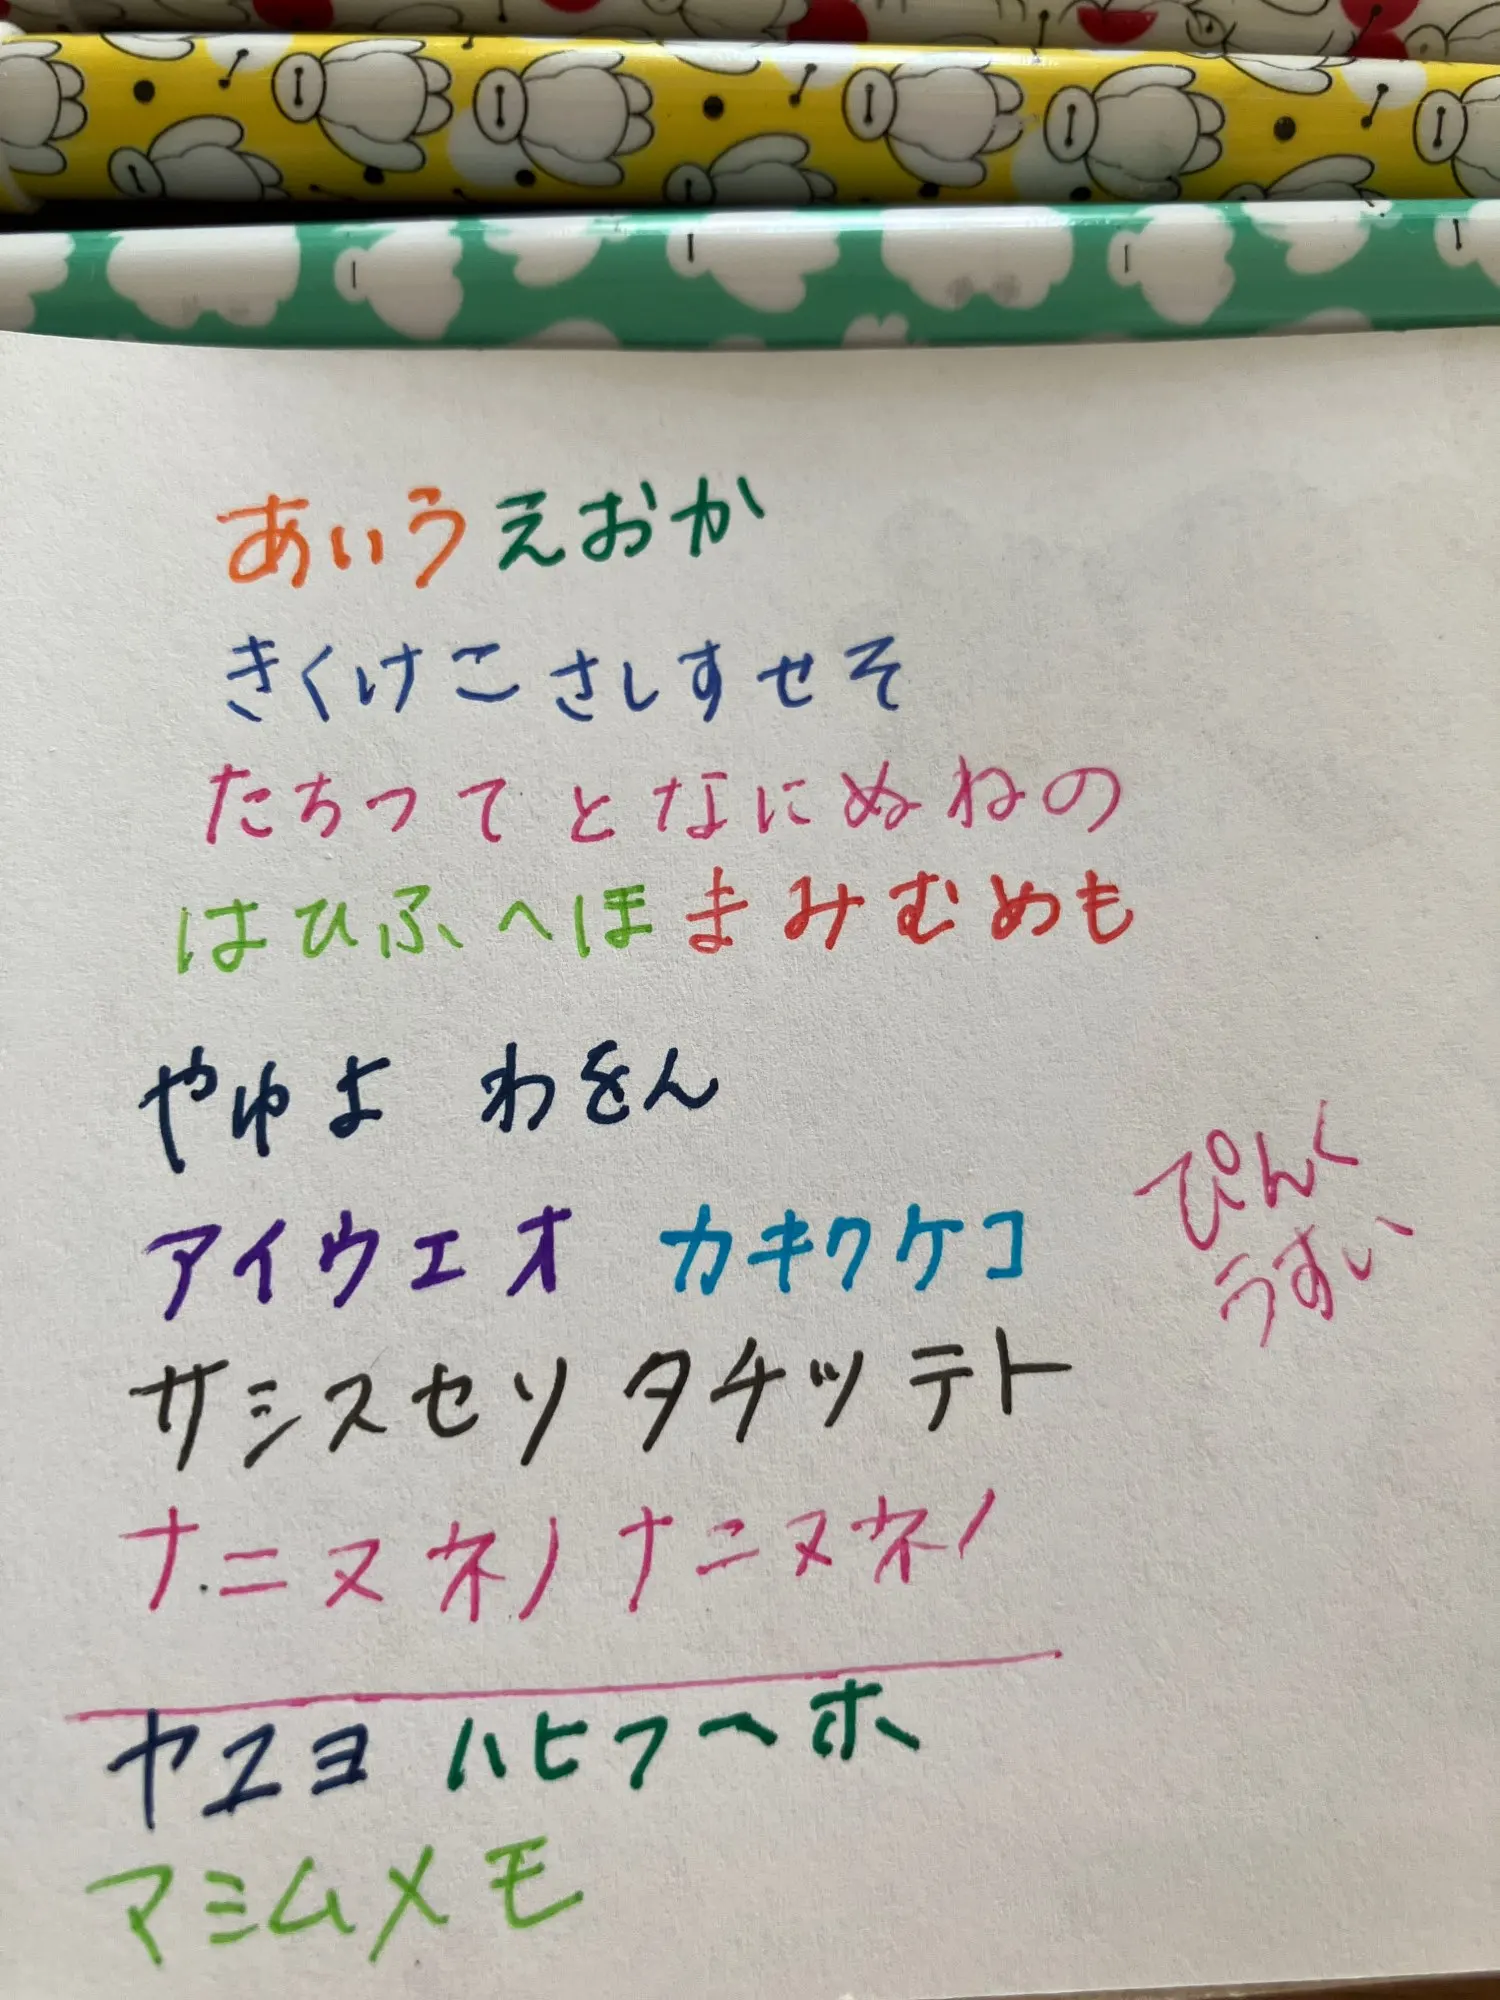 あいうえおか
きくけこ さしすせそ
たちつてとなにぬねの
はひふへほまみむめも
やゆよ わをん
アイウエオ カキクケコ
サシスセソ タチツテト
ナニヌネノナニヌネノ
ヤユヨ ハヒフヘホ
マミムメモ
ぴんく
うすい